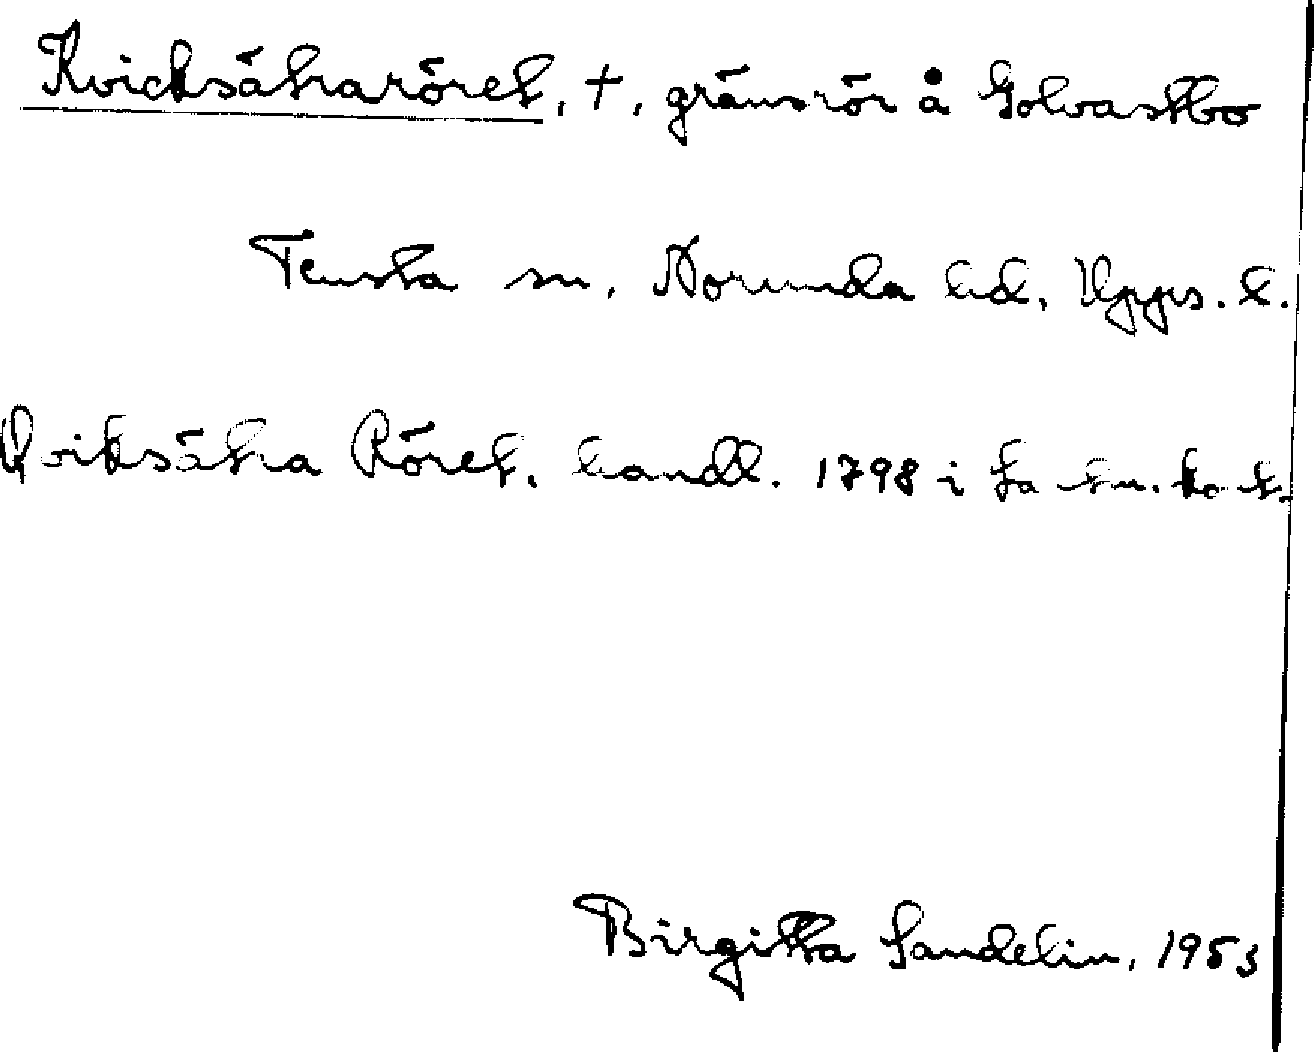 Kvicksätraröret, +, gränsrör å Golvastbo
Tensta sn, Norunda hd, Upps. l.
Qviksätra Röret, handl. 1798 i La
Birgitta Sandelin, 1953